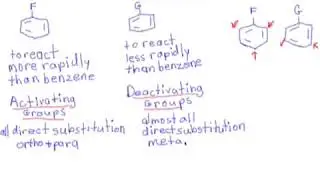 F
G
F
G
to react
more rapidly
than benzene
Activating
Groups
all direct substitution
ortho + para
to react
less rapidly
than benzene
Deactivating
Groups
almost all
direct substitution
meta